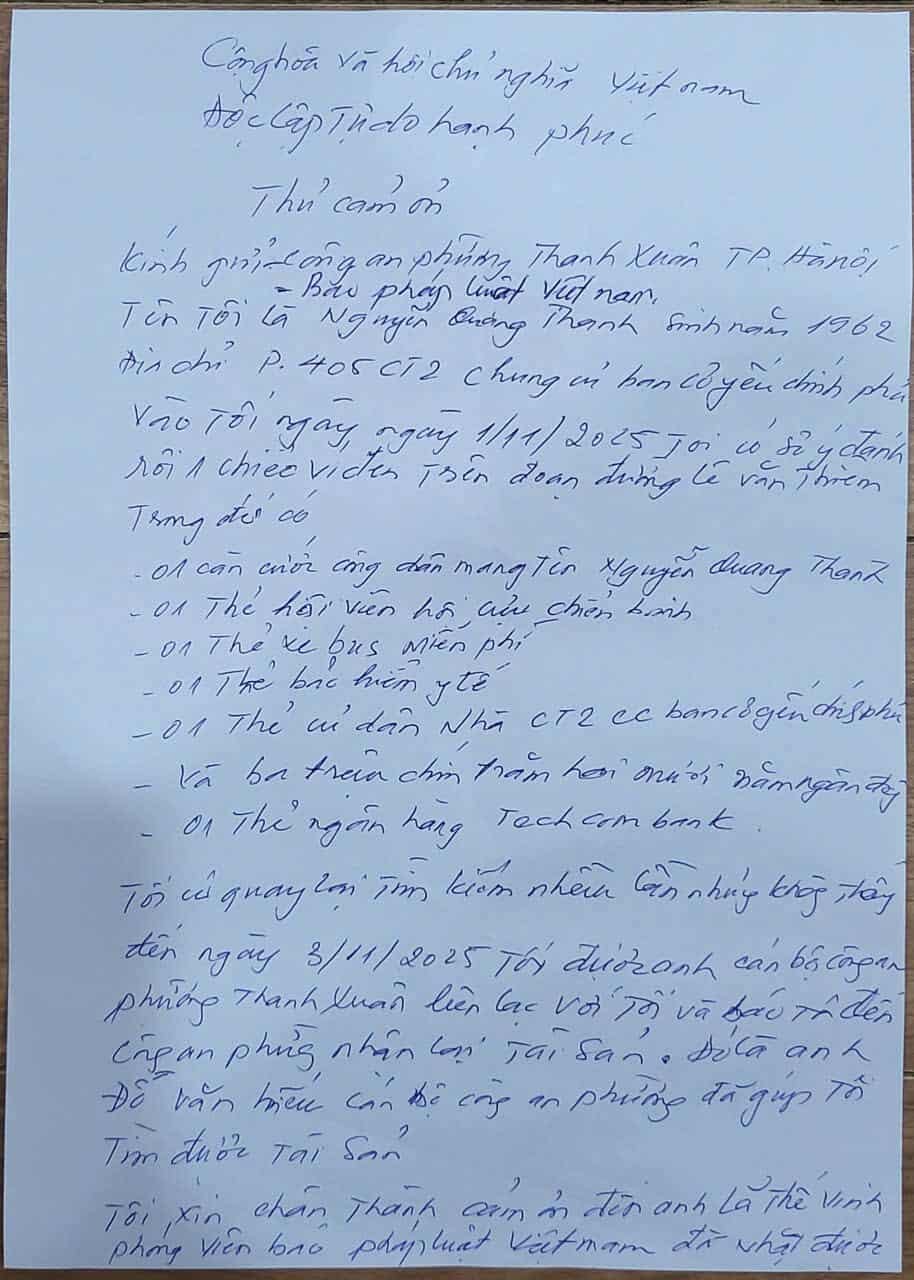 Cộng hòa xã hội chủ nghĩa Việt nam
Độc lập Tự do hạnh phúc
Thư cảm ơn
Kính gửi - Công an phường Thanh Xuân TP. Hà nội
- Báo pháp luật Việt nam.
Tên Tôi là Nguyễn Quang Thanh Sinh năm 1962
Địa chỉ P. 405 CT2 chung cư ban cơ yếu chính phủ
Vào Tối ngày, ngày 1/11/2025 Tôi có sơ ý đánh
rơi 1 chiếc ví đen Trên đoạn đường Lê Văn Thiêm
Trong đó có
- 01 căn cước công dân mang Tên Nguyễn Quang Thanh
- 01 Thẻ hội viên hội cựu chiến binh
- 01 Thẻ xe bus Miễn phí
- 01 Thẻ bảo hiểm y tế
- 01 Thẻ cư dân Nhà CT2 CC ban cơ yếu chính phủ
- Và ba triệu chín trăm hai mươi năm ngàn đồng
- 01 Thẻ ngân hàng Techcombank.
Tôi có quay lại Tìm kiếm nhiều lần nhưng không thấy
đến ngày 3/11/2025 Tôi được anh cán bộ công an
phường Thanh Xuân liên lạc với Tôi và báo Tôi đến
Công an phường nhận lại Tài Sản. Đó là anh
Đỗ Văn hiếu Cán bộ công an phường đã giúp Tôi
Tìm được Tài Sản
Tôi xin chân Thành cảm ơn đến anh Lã Thế Vinh
phóng viên báo pháp luật Việt nam đã nhặt được